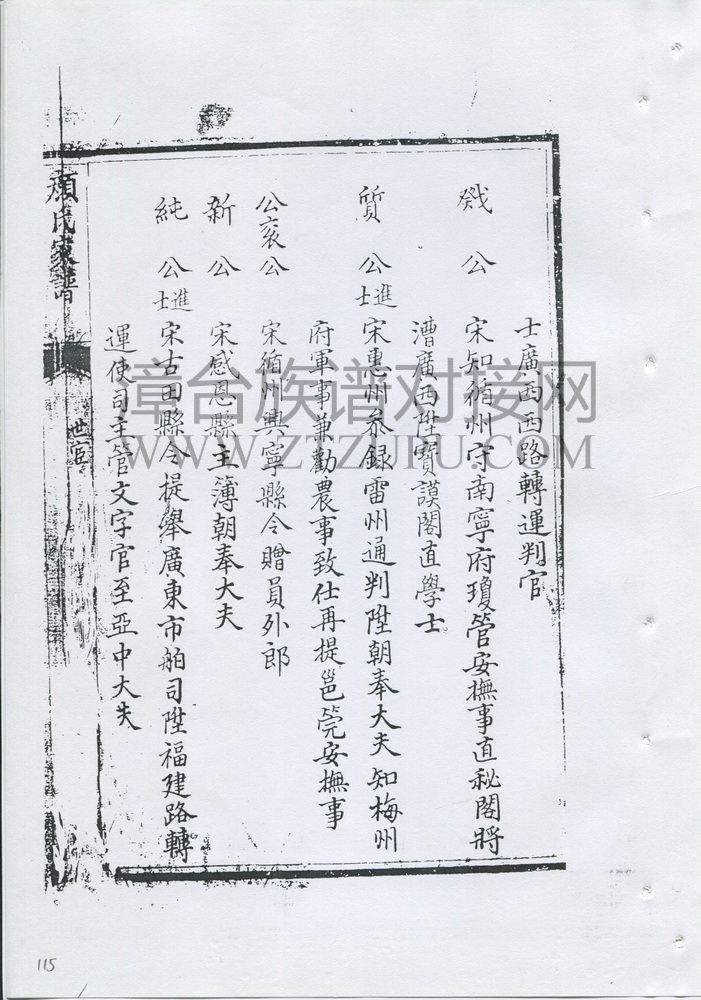 士廣西西路轉運判官
戣 公 宋知循州守南寧府瓊管安撫事直秘閣將
漕廣西陞寶謨閣直學士
質 公進士 宋惠州叅録雷州通判陞朝奉大夫知梅州
府軍事兼勸農事致仕再提邕筦安撫事
公衮公 宋循州興寧縣令贈員外郎
新 公 宋感恩縣主簿朝奉大夫
純 公進士 宋古田縣令提舉廣東市舶司陞福建路轉
運使司主管文字官至亞中大夫
顏氏家譜
世宦
漳台族谱对接网
WWW.ZTZUPU.COM
115